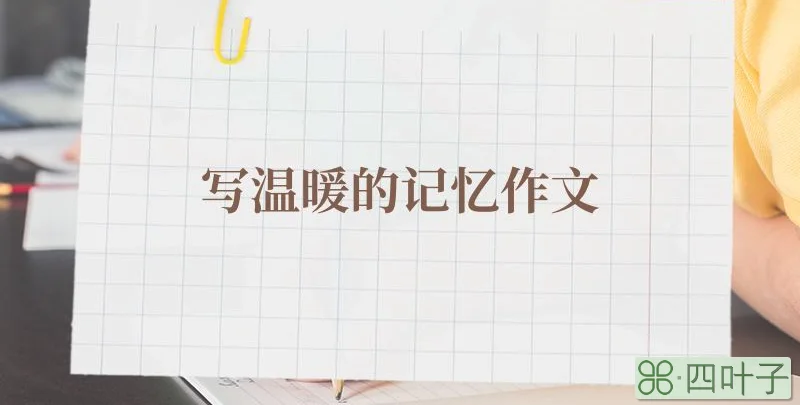 写温暖的记忆作文
四叶子